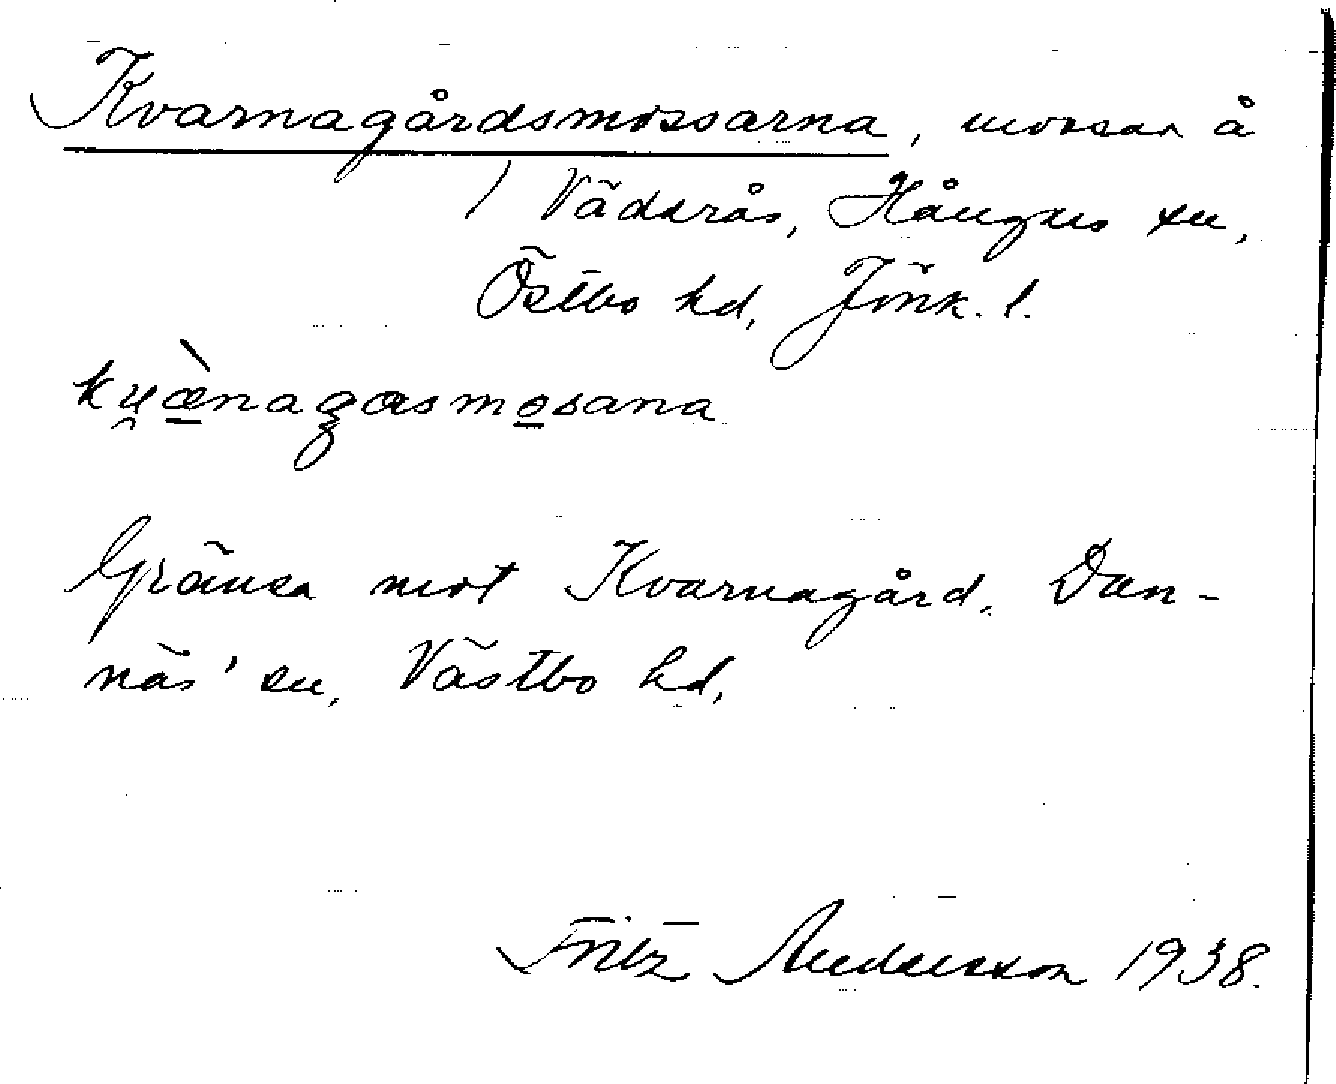 Kvarnagårdsmossarna, mossar å
/ Väderås, Hångers sn,
Östbo hd, Jönk. l.
ku̯æ̀nagasmosana
Gränsa mot Kvarnagård, Dan-
näs' sn, Västbo hd,
Fritz Andersson 1938.